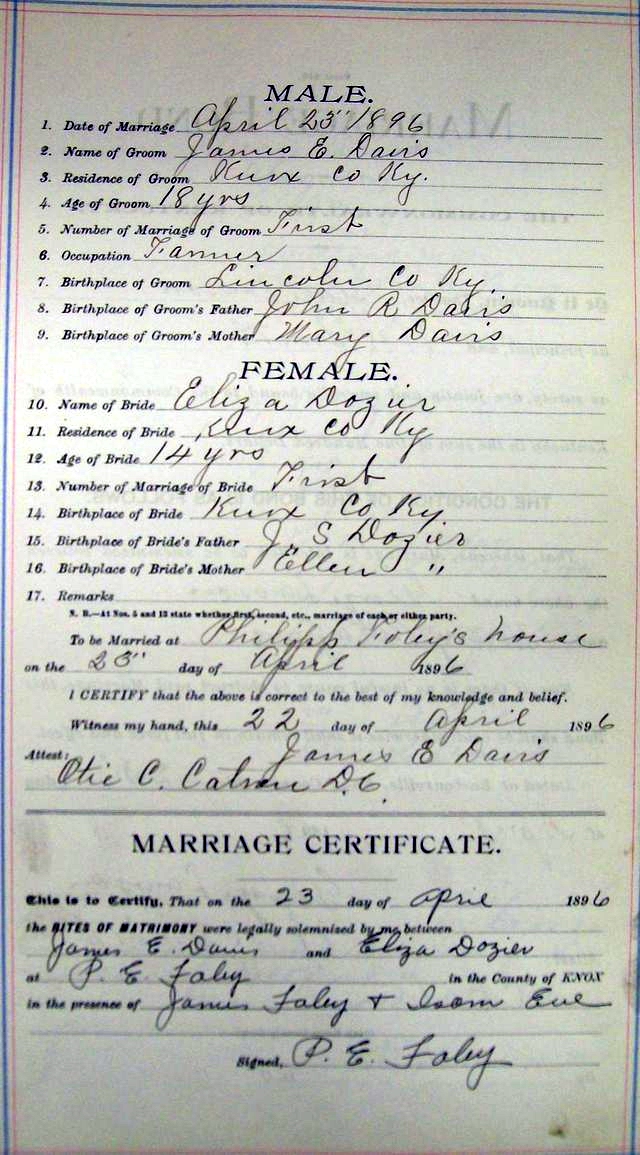 MALE.
1. Date of Marriage April 23" 1896
2. Name of Groom James E. Davis
3. Residence of Groom Knox Co Ky.
4. Age of Groom 18 yrs
5. Number of Marriage of Groom First
6. Occupation Farmer
7. Birthplace of Groom Lincoln Co Ky.
8. Birthplace of Groom's Father John R Davis
9. Birthplace of Groom's Mother Mary Davis
FEMALE.
10. Name of Bride Eliza Dozier
11. Residence of Bride Knox Co Ky
12. Age of Bride 14 yrs
13. Number of Marriage of Bride First
14. Birthplace of Bride Knox Co Ky
15. Birthplace of Bride's Father J. S Dozier
16. Birthplace of Bride's Mother Ellen "
17. Remarks
N. B.—At Nos. 5 and 13 state whether first, second, etc., marriage of each or either party.
To be Married at Philipp Foley's house
on the 23" day of April 1896
I CERTIFY that the above is correct to the best of my knowledge and belief.
Witness my hand, this 22 day of April 1896
James E Davis
Attest:
Otie C. Catron D.C.
MARRIAGE CERTIFICATE.
This is to Certify, That on the 23 day of April 1896
the RITES OF MATRIMONY were legally solemnized by me between
James E. Davis and Eliza Dozier
at P. E. Foley in the County of KNOX
in the presence of James Foley + Isom
Signed, P. E. Foley